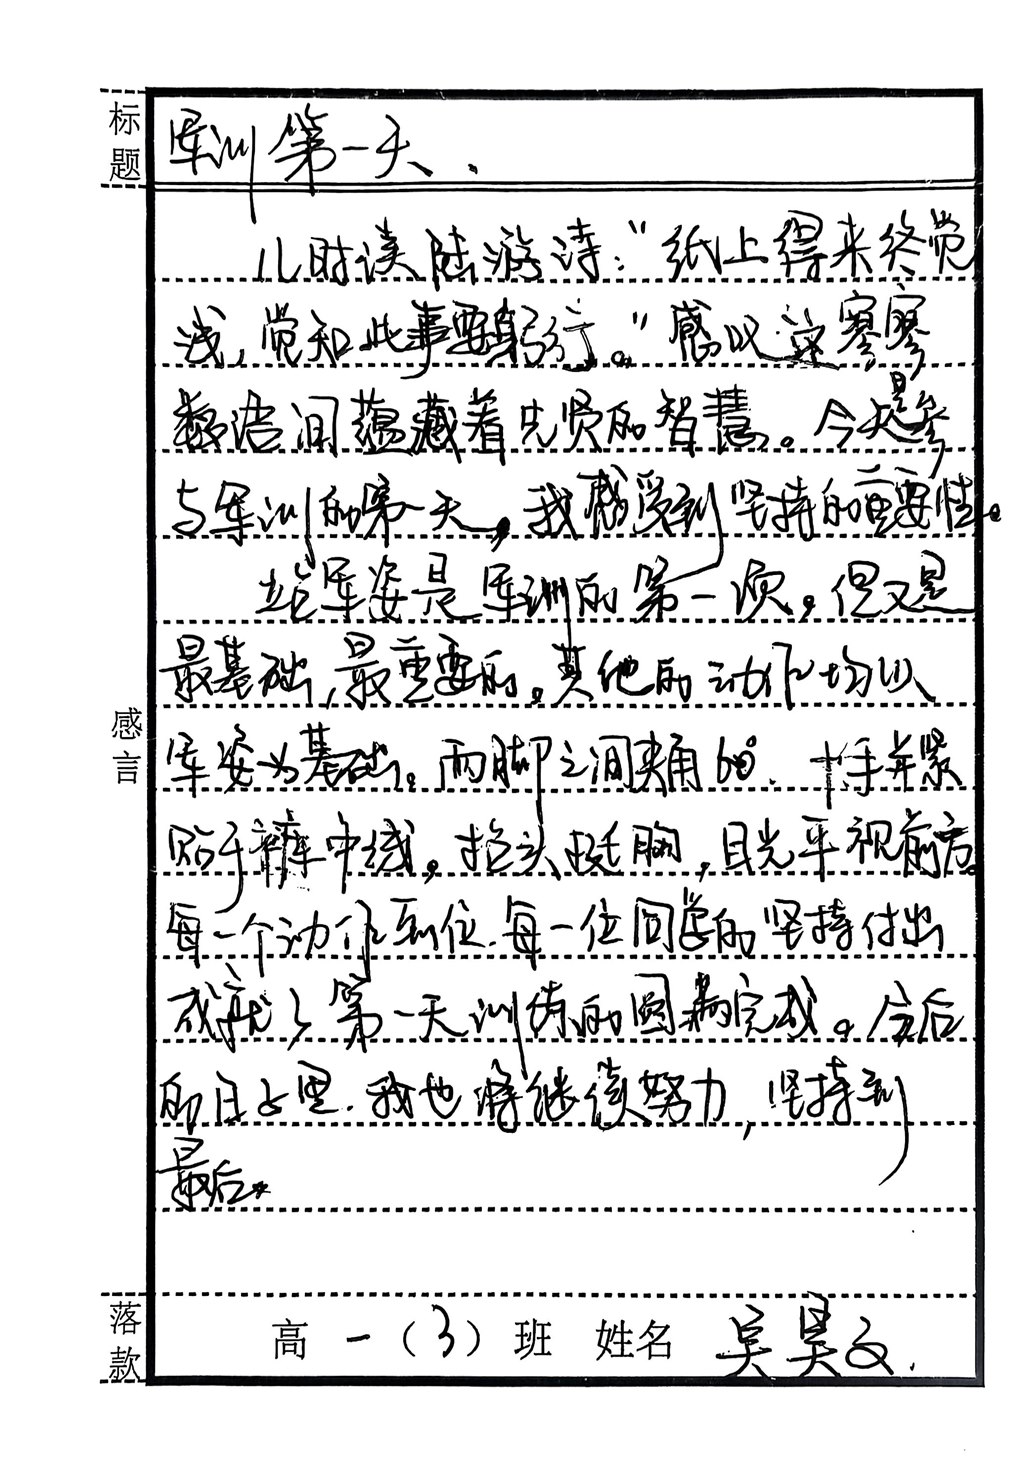 标题
军训第一天.
儿时读陆游诗：“纸上得来终觉
浅，觉知此事要躬行。”感叹这寥寥
数语间蕴藏着先贤的智慧。今天是参
与军训的第一天，我感受到坚持的重要性。
站军姿是军训的第一项。但又是
最基础，最重要的。其他的动作均以
军姿为基础。两脚之间夹角60°.手并紧
贴于裤中线，抬头挺胸，目光平视前方。
每一个动作到位.每一位同学的坚持付出
成就了第一天训练的圆满完成。今后
的日子里.我也将继续努力，坚持到
最后。
感言
落款
高一（3）班 姓名 吴昊文.